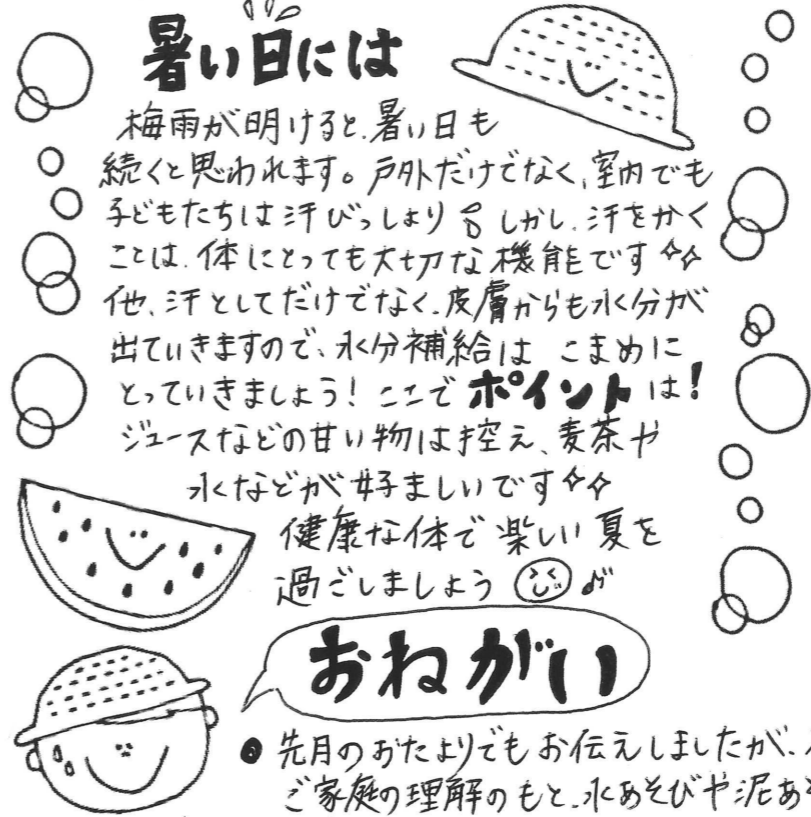 暑い日には
梅雨が明けると、暑い日も
続くと思われます。戸外だけでなく、室内でも
子どもたちは汗びっしょり しかし、汗をかく
ことは、体にとっても大切な機能です
他、汗としてだけでなく、皮膚からも水分が
出ていきますので、水分補給は こまめに
とっていきましょう！ここでポイントは！
ジュースなどの甘い物は控え、麦茶や
水などが好ましいです
健康な体で楽しい夏を
過ごしましょう
おねがい
● 先月のおたよりでもお伝えしましたが、
ご家庭の理解のもと、水あそびや泥あ